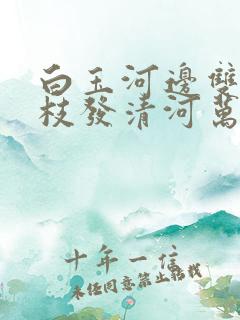 白玉河邊雙
枝發清河萬
十年一信
未经同意禁止转载